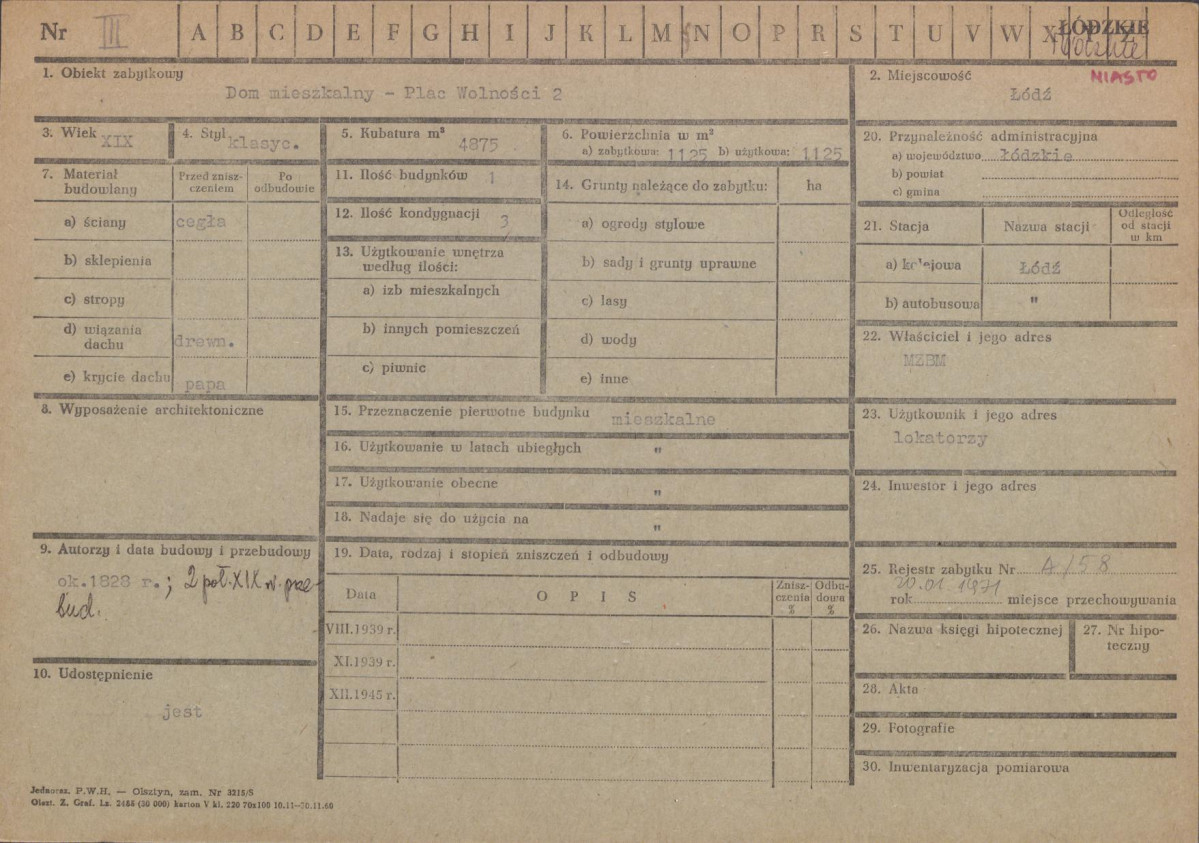 Nr III A B C D E F G H I J K L M N O P R S T U V W X Y Z ŁÓDZKIE
MIASTO
1. Obiekt zabytkowy
Dom mieszkalny – Plac Wolności 2
2. Miejscowość
Łódź
3. Wiek XIX
4. Styl klasyc.
5. Kubatura m³ 4875
6. Powierzchnia w m²
a) zabytkowa: 1125 b) użytkowa: 1125
20. Przynależność administracyjna
a) województwo łódzkie
b) powiat
c) gmina
7. Materiał budowlany
Przed zniszczeniem
Po odbudowie
a) ściany cegła
b) sklepienia
c) stropy
d) wiązania dachu drewn.
e) krycie dachu papa
11. Ilość budynków 1
12. Ilość kondygnacji 3
13. Użytkowanie wnętrza
według ilości:
a) izb mieszkalnych
b) innych pomieszczeń
c) piwnic
14. Grunty należące do zabytku: ha
a) ogrody stylowe
b) sady i grunty uprawne
c) lasy
d) wody
e) inne
21. Stacja Nazwa stacji Odległość od stacji w km
a) kolejowa Łódź
b) autobusowa "
22. Właściciel i jego adres
MZBM
8. Wyposażenie architektoniczne
15. Przeznaczenie pierwotne budynku mieszkalne
16. Użytkowanie w latach ubiegłych "
17. Użytkowanie obecne "
18. Nadaje się do użycia na "
23. Użytkownik i jego adres
lokatorzy
24. Inwestor i jego adres
9. Autorzy i data budowy i przebudowy
ok.1828 r.; 2 poł. XIX w. prze-
bud.
19. Data, rodzaj i stopień zniszczeń i odbudowy
Data O P I S Zniszczenia % Odbudowa %
VIII.1939 r.
XI.1939 r.
XII.1945 r.
25. Rejestr zabytku Nr A/58
20.01.1971
rok miejsce przechowywania
26. Nazwa księgi hipotecznej
27. Nr hipoteczny
10. Udostępnienie
jest
28. Akta
29. Fotografie
30. Inwentaryzacja pomiarowa
Jednoraz. P.W.H. — Olsztyn, zam. Nr 3215/S
Olszt. Z. Graf. Lz. 2455 (30 000) karton V kl. 220 70x100 10.11—30.11.60